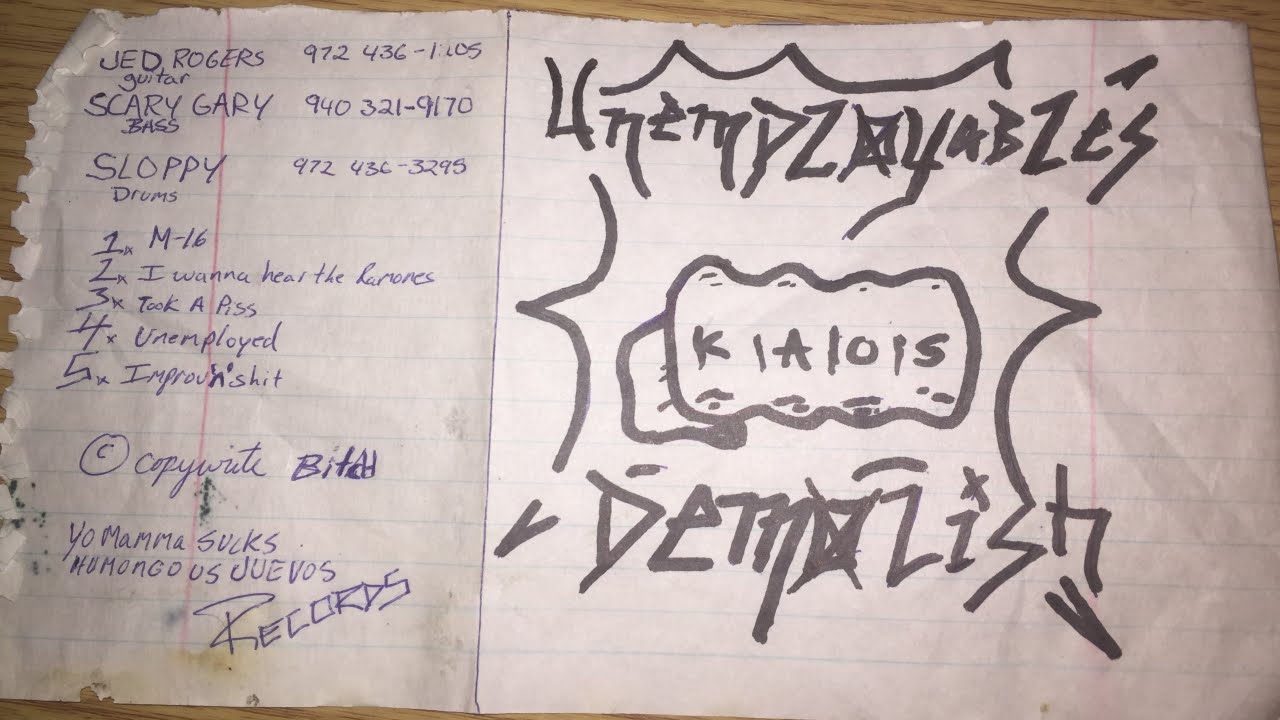 JED ROGERS 972 436-1205
guitar
SCARY GARY 940 321-9170
BASS
SLOPPY 972 436-3295
Drums
1x M-16
2x I wanna hear the Ramones
3x Took A Piss
4x Unemployed
5x Improv'n'shit
© copywrite Bitch
Yo Mamma SUCKS
HUMONGOUS JUEVOS
RECORDS
UnempLoyabLes
K|A|O|S
DemoLish